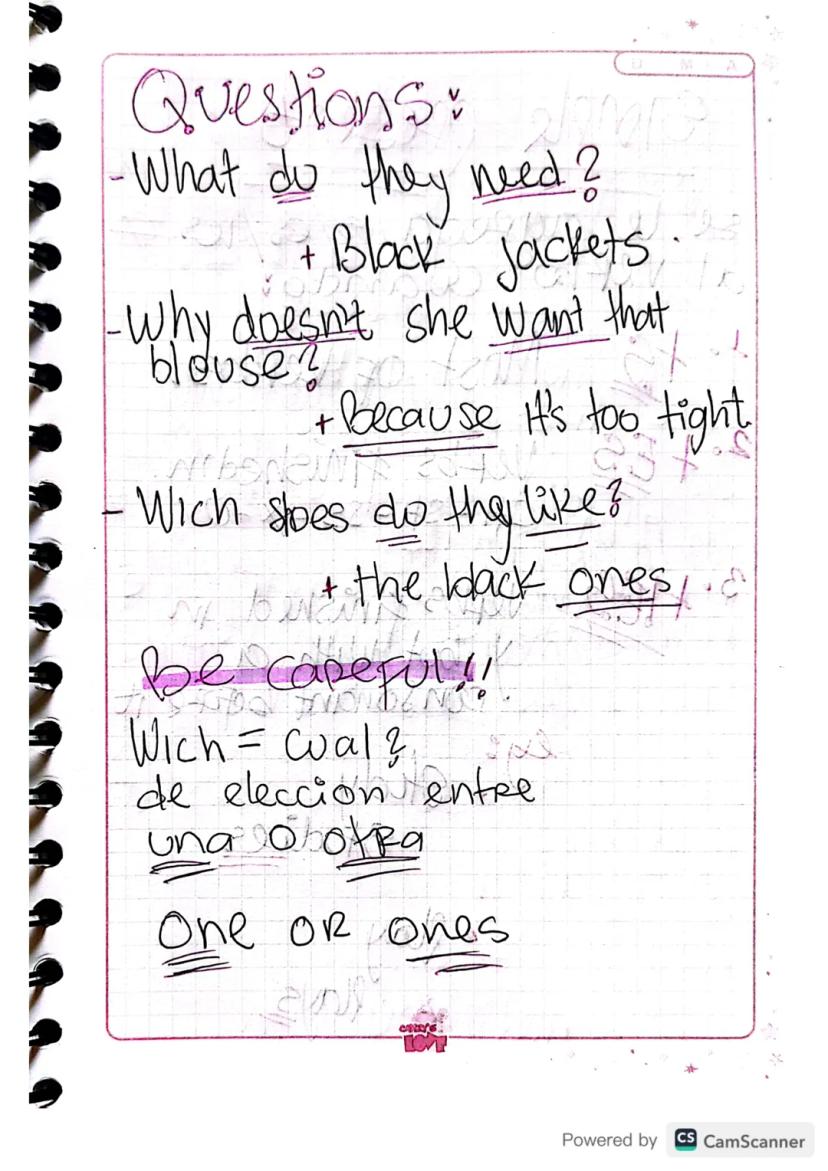 Questions:
- What do they need?
+ Black jackets.
- Why doesn't she want that
blouse?
+ Because it's too tight.
- Wich shoes do they like?
+ the black ones
Be careful!!
Wich = cual?
de eleccion entre
una o otra
One or ones
LOVE
Powered by CS CamScanner